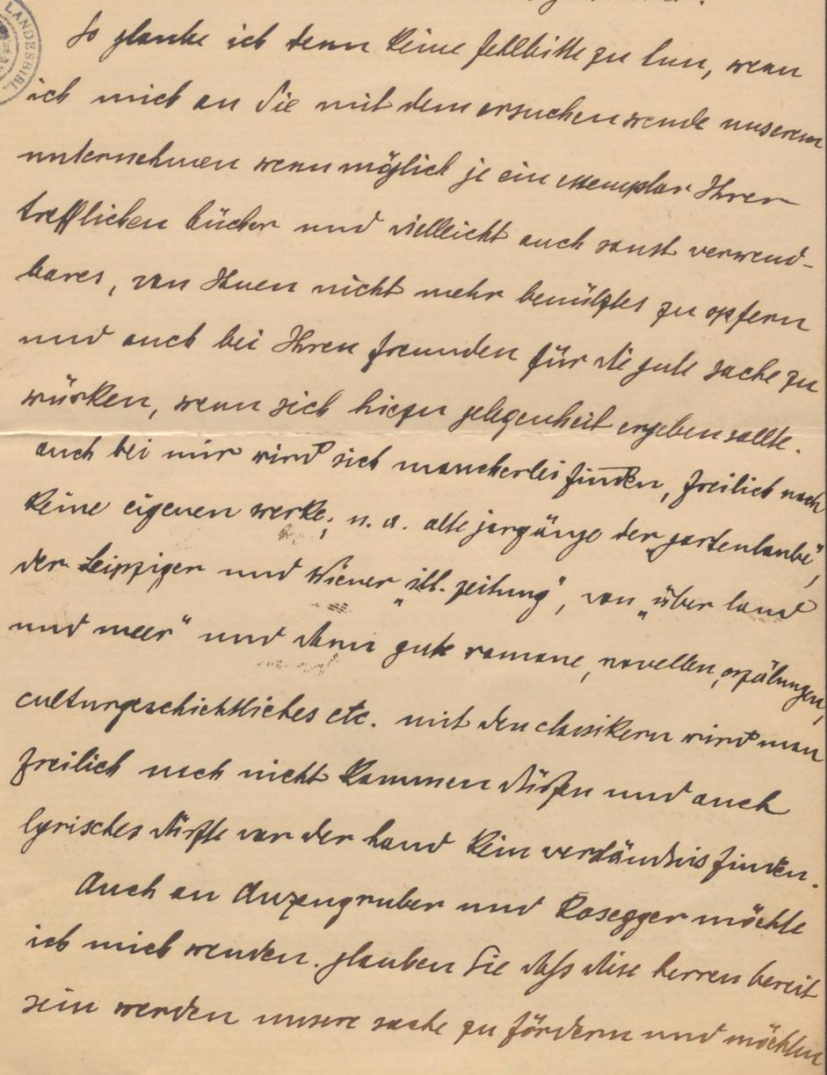 LANDESBIBL.
So glaube ich denn keine fehlbitte zu tun, wenn
ich mich an Sie mit dem ersuchen wende unserem
unternehmen wenn möglich je ein exemplar Ihrer
trefflichen bücher und vielleicht auch sonst verwend-
bares, von Ihnen nicht mehr benütztes zu opfern
und auch bei Ihren freunden für die gute sache zu
würken, wenn sich hiezu gelegenheit ergeben sollte.
auch bei mir wird sich mancherlei finden, freilich noch
keine eigenen werke; u. a. alte jargänge der „gartenlaube",
der Leipziger und Wiener „ill. zeitung", von „über land
und meer" und dann gute romane, novellen, erzälungen,
culturgeschichtliches etc. mit den classikern wird man
freilich noch nicht kommen dürfen und auch
lyrisches dürfte vor der hand kein verständnis finden.
Auch an Anzengruber und Rosegger möchte
ich mich wenden. glauben Sie dass dise herren bereit
sein werden unsere sache zu fördern und möchten